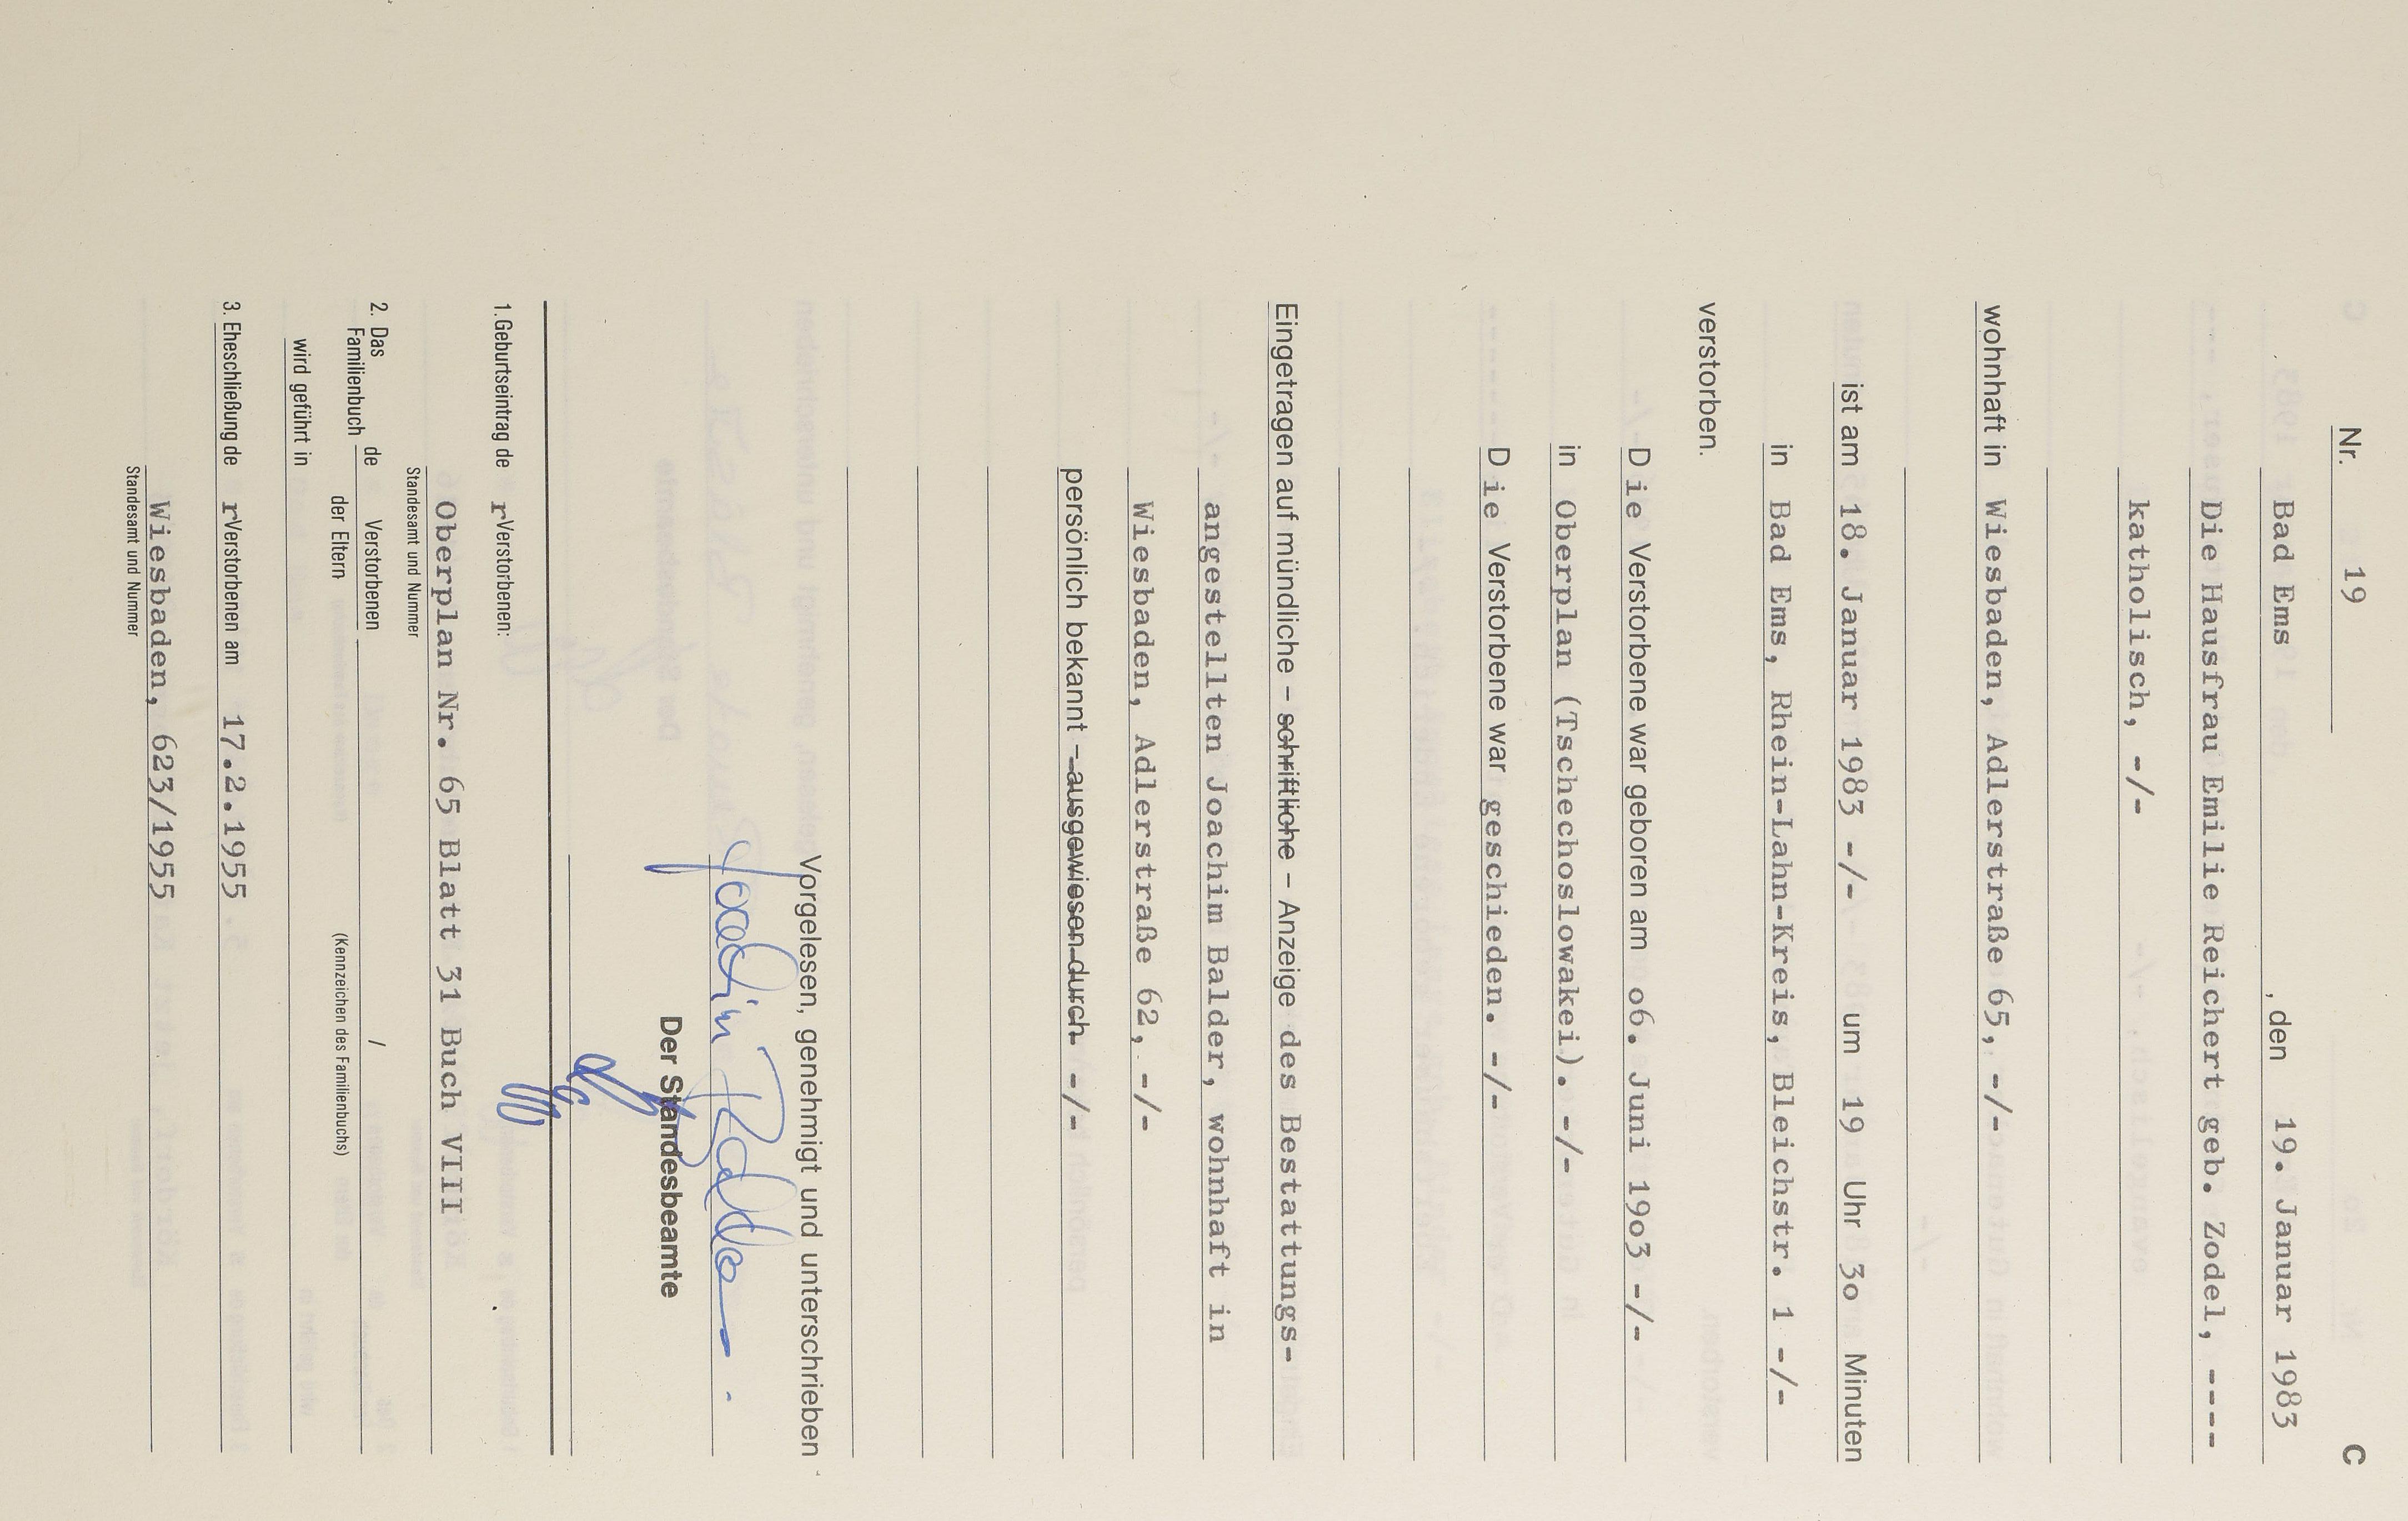 Nr. 19 C
Bad Ems , den 19. Januar 1983
Die Hausfrau Emilie Reichert geb. Zodel, ----
katholisch, -/-
wohnhaft in Wiesbaden, Adlerstraße 65, -/-
ist am 18. Januar 1983 -/- um 19 Uhr 3o Minuten
in Bad Ems, Rhein-Lahn-Kreis, Bleichstr. 1 -/-
verstorben.
Die Verstorbene war geboren am o6. Juni 19o3 -/-
in Oberplan (Tschechoslowakei). -/-
Die Verstorbene war geschieden. -/-
Eingetragen auf mündliche – schriftliche – Anzeige des Bestattungs-
angestellten Joachim Balder, wohnhaft in
Wiesbaden, Adlerstraße 62, -/-
persönlich bekannt – ausgewiesen durch -/-
Vorgelesen, genehmigt und unterschrieben
Joachim Balder
Der Standesbeamte
1. Geburtseintrag der Verstorbenen:
Oberplan Nr. 65 Blatt 31 Buch VIII
Standesamt und Nummer
2. Das Familienbuch de Verstorbenen / der Eltern
(Kennzeichen des Familienbuchs)
wird geführt in
3. Eheschließung der Verstorbenen am 17.2.1955
Wiesbaden, 623/1955
Standesamt und Nummer